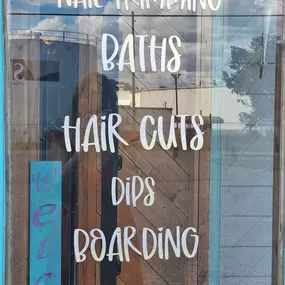 NAIL TRIMMING
BATHS
HAIR CUTS
DIPS
BOARDING
Welc